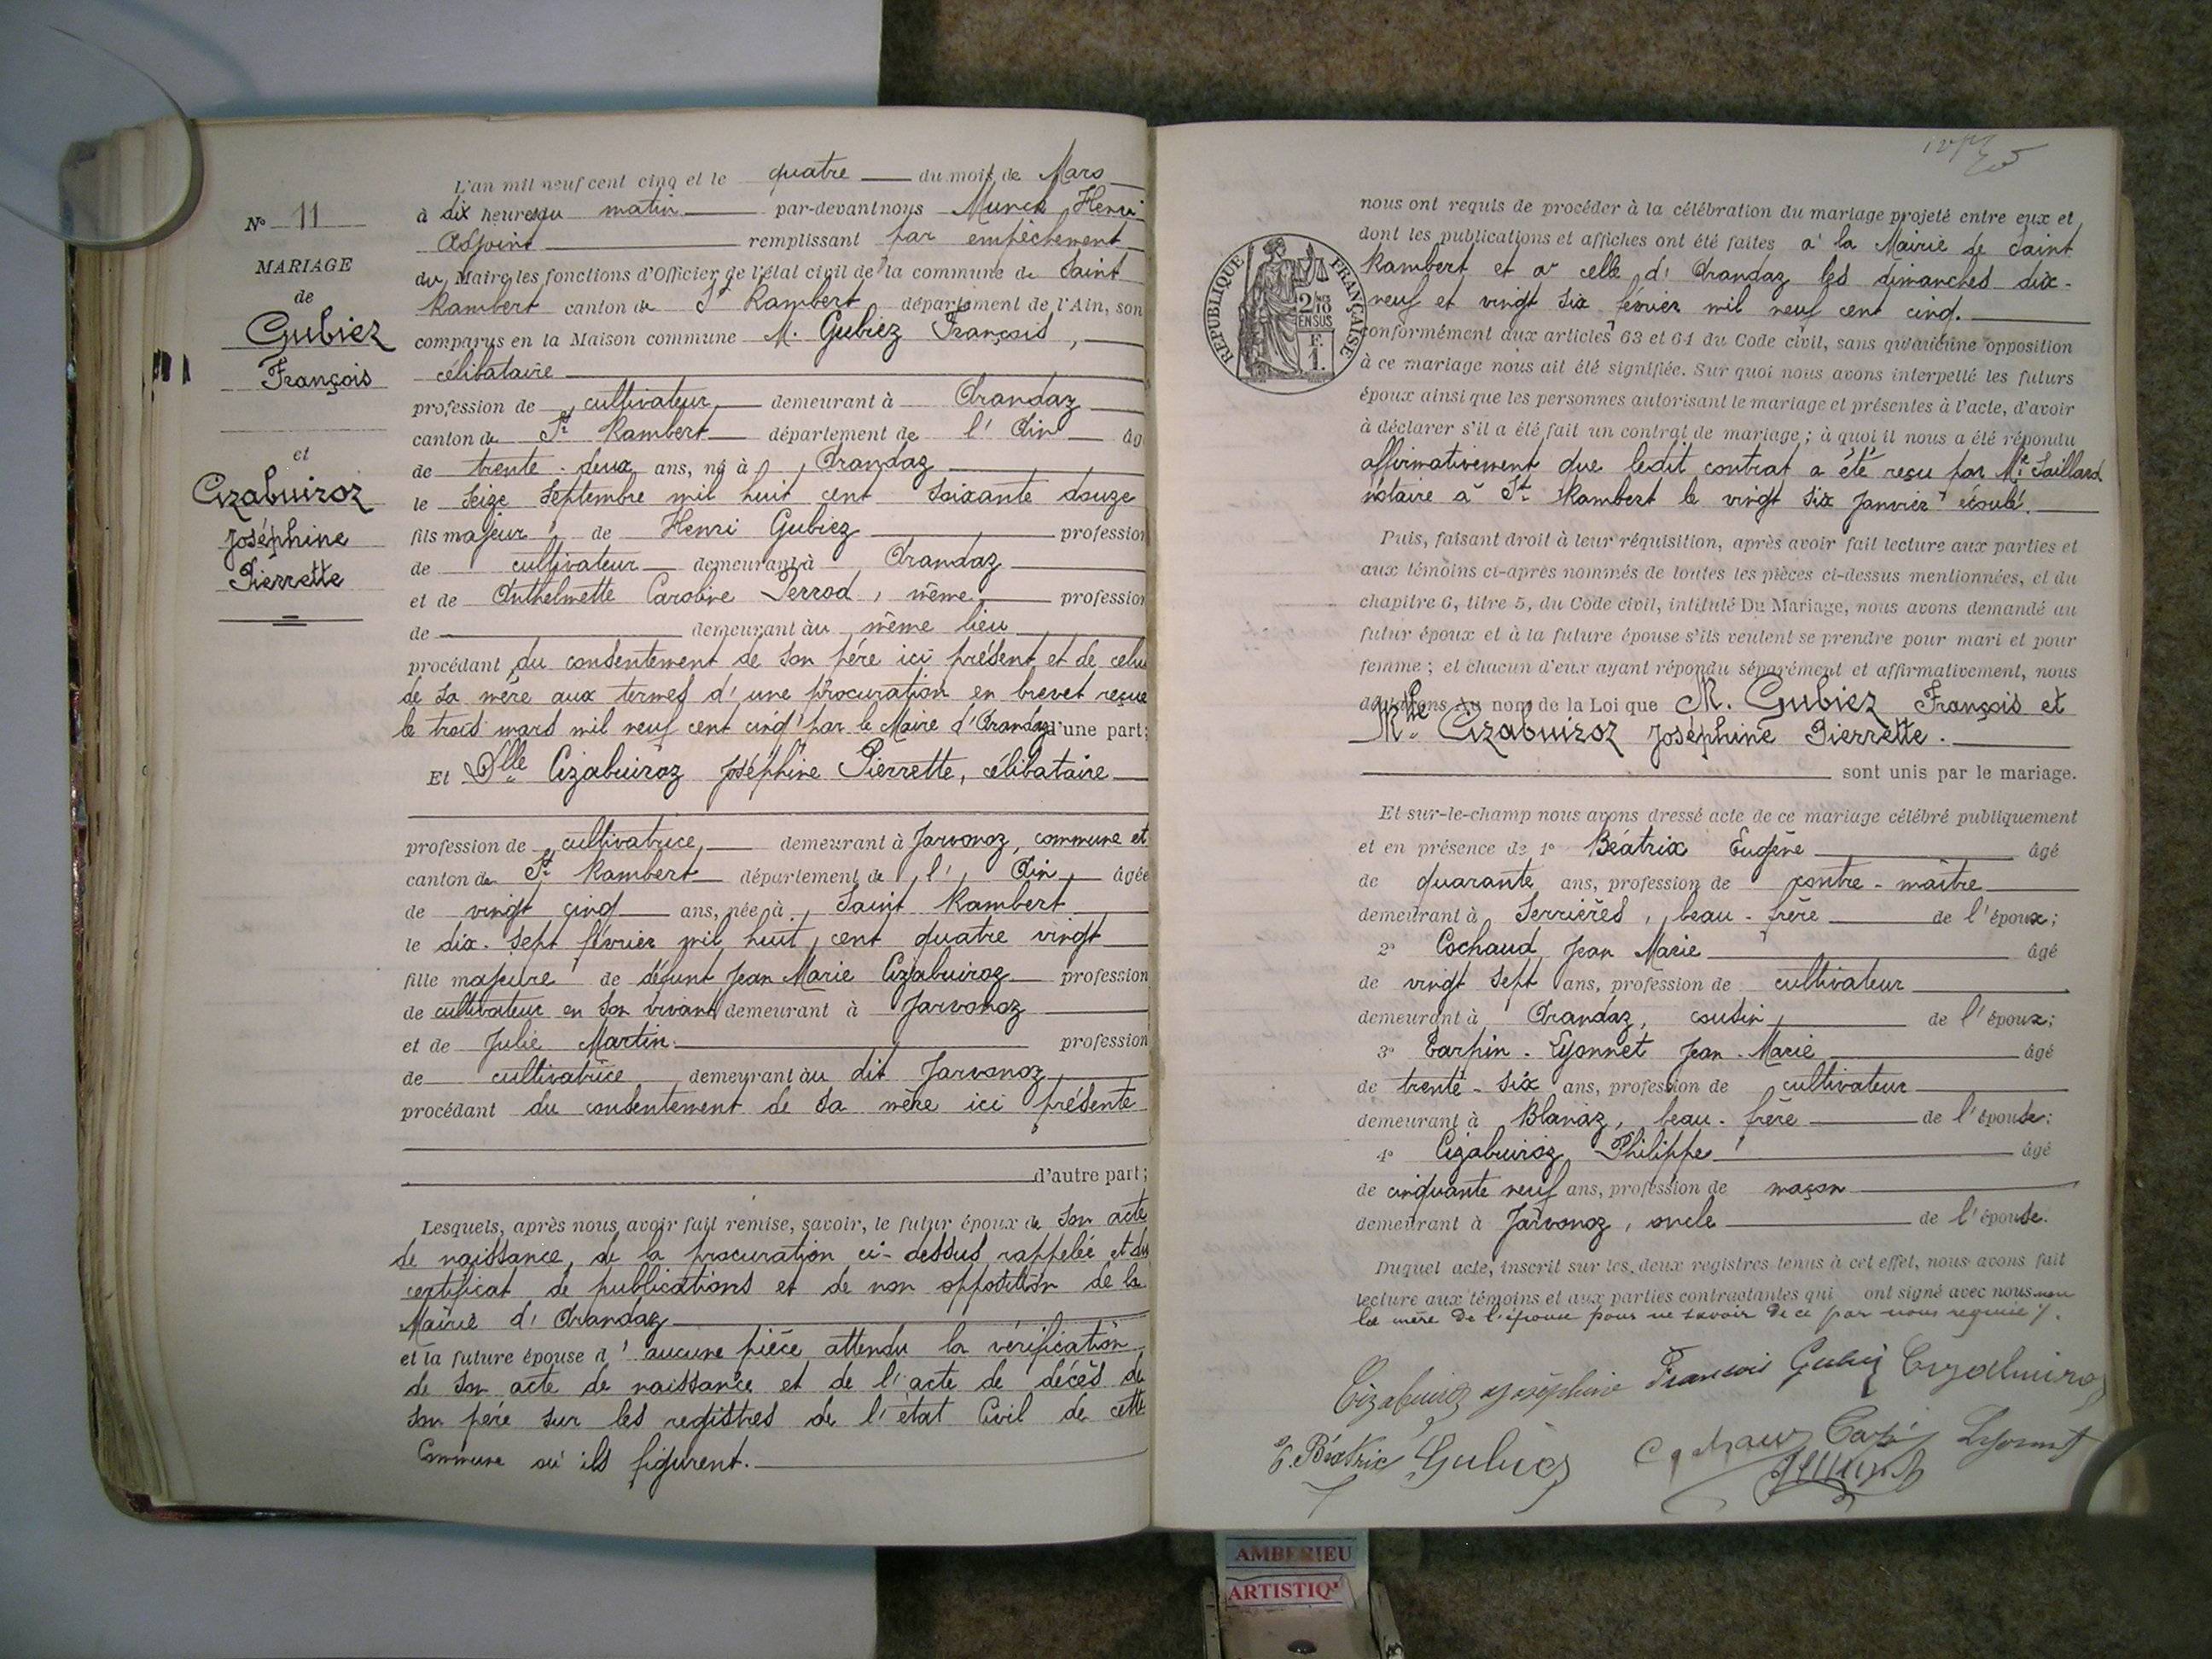 N° 11
MARIAGE
de
Gubiez
François
et
Cizabuiroz
Joséphine
Pierrette
L'an mil neuf cent cinq et le quatre du mois de Mars
à dix heures du matin par-devant nous Munck Henri
Adjoint remplissant par empêchement
du Maire les fonctions d'Officier de l'état civil de la commune de Saint
Rambert canton de St Rambert département de l'Ain, son
comparus en la Maison commune M. Gubiez François,
célibataire
profession de cultivateur demeurant à Arandaz
canton de St Rambert département de l'Ain âg
de trente-deux ans, né à Arandaz
le seize septembre mil huit cent soixante douze
fils majeur de Henri Gubiez profession
de cultivateur demeurant à Arandaz
et de Anthelmette Caroline Perrod, même profession
de demeurant au même lieu
procédant du consentement de son père ici présent et de celui
de sa mère aux termes d'une procuration en brevet reçue
le trois mars mil neuf cent cinq par le Maire d'Arandaz d'une part;
Et Dlle Cizabuiroz Joséphine Pierrette, célibataire
profession de cultivatrice demeurant à Javornoz, commune et
canton de St Rambert département de l'Ain âgée
de vingt cinq ans, née à Saint Rambert
le dix-sept février mil huit cent quatre vingt
fille majeure de défunt Jean Marie Cizabuiroz profession
de cultivateur en son vivant demeurant à Jarvonoz
et de Julie Martin profession
de cultivatrice demeurant au dit Jarvonoz
procédant du consentement de sa mère ici présente
d'autre part;
Lesquels, après nous avoir fait remise, savoir, le futur époux de son acte
de naissance, de la procuration ci-dessus rappelée et du
certificat de publications et de non opposition de la
Mairie d'Arandaz
et la future épouse d'aucune pièce attendu la vérification
de son acte de naissance et de l'acte de décès de
son père sur les registres de l'état Civil de cette
Commune où ils figurent.
nous ont requis de procéder à la célébration du mariage projeté entre eux et
dont les publications et affiches ont été faites à la Mairie de Saint
Rambert et à celle d'Arandaz les dimanches dix-
neuf et vingt six février mil neuf cent cinq.
conformément aux articles 63 et 64 du Code civil, sans qu'aucune opposition
à ce mariage nous ait été signifiée. Sur quoi nous avons interpellé les futurs
époux ainsi que les personnes autorisant le mariage et présentes à l'acte, d'avoir
à déclarer s'il a été fait un contrat de mariage; à quoi il nous a été répondu
affirmativement que ledit contrat a été reçu par Me Saillard
notaire à St Rambert le vingt six Janvier écoulé.
Puis, faisant droit à leur réquisition, après avoir fait lecture aux parties et
aux témoins ci-après nommés de toutes les pièces ci-dessus mentionnées, et du
chapitre 6, titre 5, du Code civil, intitulé Du Mariage, nous avons demandé au
futur époux et à la future épouse s'ils veulent se prendre pour mari et pour
femme; et chacun d'eux ayant répondu séparément et affirmativement, nous
déclarons Au nom de la Loi que M. Gubiez François et
Mlle Cizabuiroz Joséphine Pierrette.
sont unis par le mariage.
Et sur-le-champ nous avons dressé acte de ce mariage célébré publiquement
et en présence de 1° Béatrix Eugène âgé
de quarante ans, profession de contre-maître
demeurant à Serrières, beau-frère de l'époux;
2° Cochaud Jean Marie âgé
de vingt sept ans, profession de cultivateur
demeurant à Arandaz, cousin de l'époux;
3° Carpin-Lyonnet Jean-Marie âgé
de trente-six ans, profession de cultivateur
demeurant à Blanaz, beau-frère de l'épouse;
4° Cizabuiroz Philippe âgé
de cinquante neuf ans, profession de maçon
demeurant à Jarvonoz, oncle de l'épouse.
Duquel acte, inscrit sur les deux registres tenus à cet effet, nous avons fait
lecture aux témoins et aux parties contractantes qui ont signé avec nous non
la mère de l'épouse pour ne savoir de ce par nous requise
Cizabuiroz Joséphine François Gubiez Cizabuiroz
E. Béatrix Gubiez Cochaud Carpin Lyonnet
RÉPUBLIQUE FRANÇAISE
2/10 EN SUS
F. 1.
AMBERIEU
ARTISTIQ